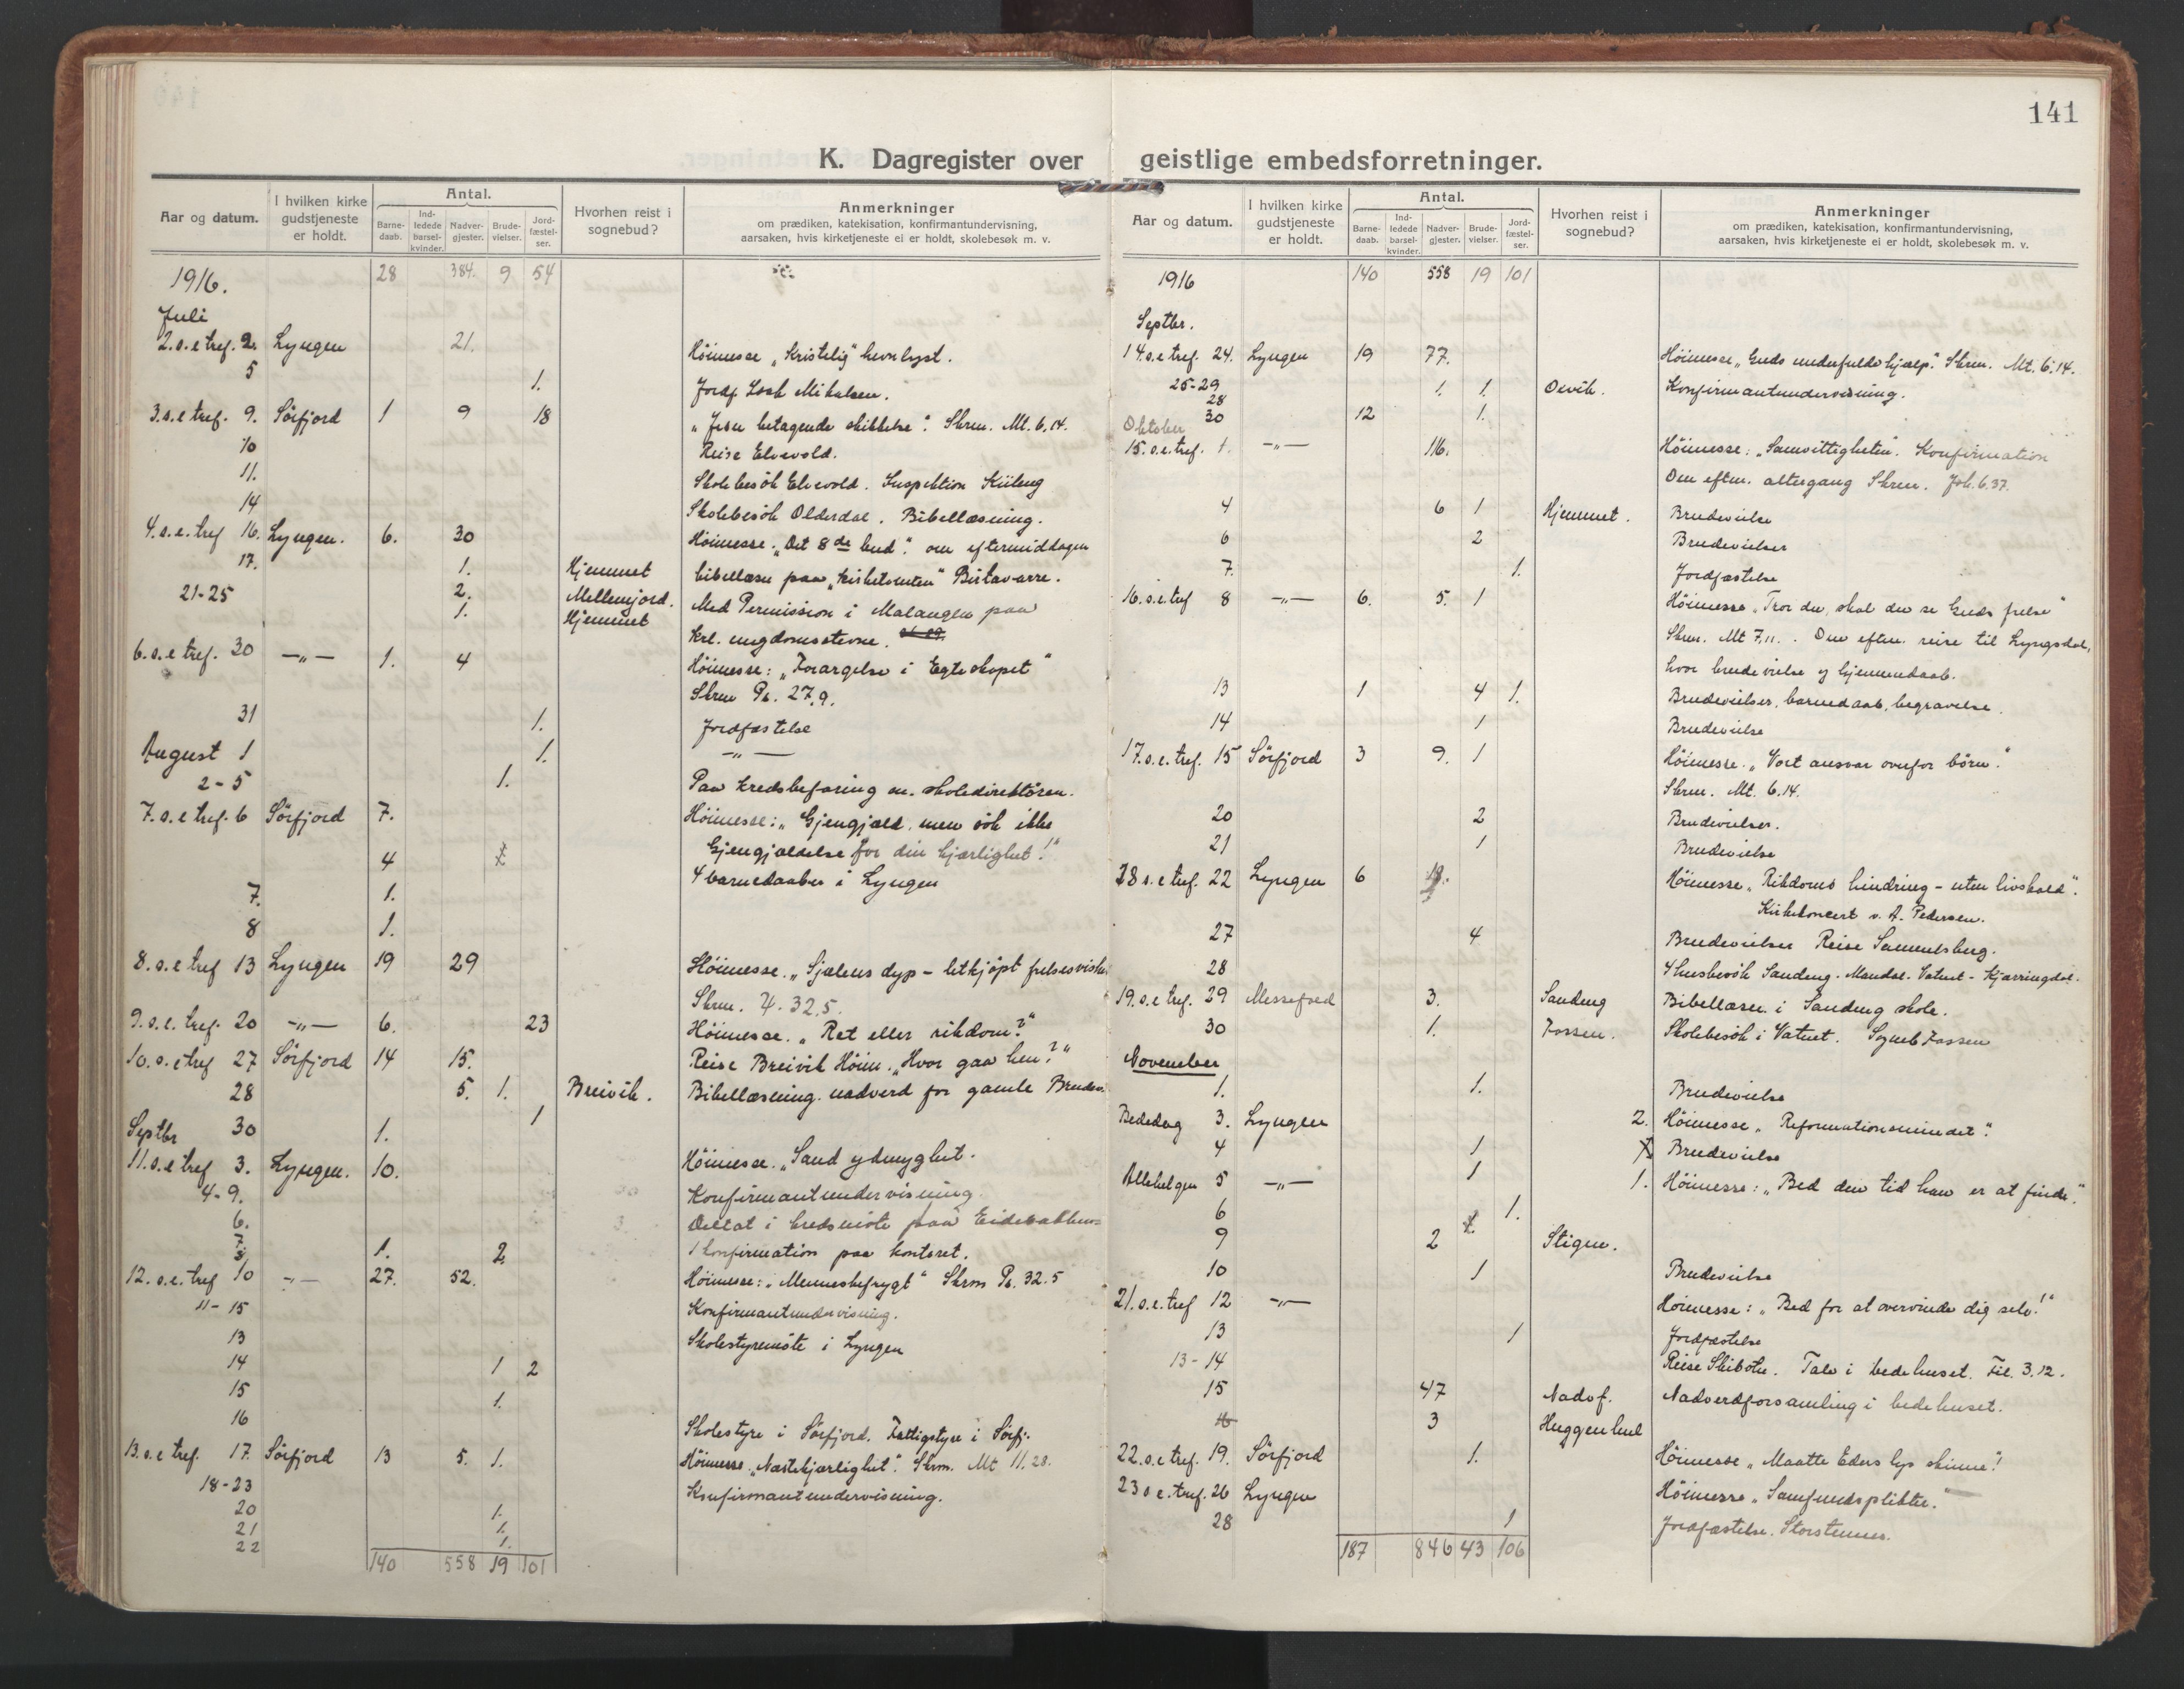 141
K. Dagregister over geistlige embedsforretninger.
Aar og datum. I hvilken kirke gudstjeneste er holdt. Antal. Barne-daab. Ind-ledede barsel-kvinder. Nadver-gjester. Brude-vielser. Jord-fæstel-ser. Hvorhen reist i sognebud? Anmerkninger om prædiken, katekisation, konfirmantundervisning, aarsaken, hvis kirketjeneste ei er holdt, skolebesøk m. v.
1916. 28 384. 9 54
Juli
2.s.e tref. 2. Lyngen 21. Höimesse „Kristelig"
5 1. Jordf. Mikalsen.
3.s.e tref. 9. Sörfjord 1 9 18 „Jesu betagende skikkelse". Skrm. Mt. 6,14.
10 Reise Elvevold.
11. Skolebesök Elvevold. Inspektion Kiileng
14 Skolebesök Olderdal. Bibellæsning.
4.s.e.tref 16. Lyngen. 6. 30 Höimesse. „Det 8de bud". om eftermiddagen
17. 1. Hjemmet bibellæsn paa „kirketomten" Birtavarre.
21-25 2. Mellemjord. Med Permission i Malangen paa
1. Hjemmet Krl. ungdomsstevne.
6.s.e tref. 30 -„- 1. 4 Höimesse: „Forargelse i Egteskapet"
Skrm Ps. 27,9.
31 1. Jordfæstelse
August 1 1. -„-
2-5 1. Paa kredsbefaring m. skoledirektören.
7.s.e tref. 6 Sörfjord 7. Höimesse: „Gjengjæld, men sök ikke
Gjengjældelse for din kjærlighet!"
4 4 barnedaaber i Lyngen
7. 1.
8 1.
8.s.e tref 13 Lyngen 19 29 Höimesse. „Sjælens dyp - letkjöpt
Skrm. 32,5.
9.s.e. tref. 20 -„- 6. 23 Höimesse. „Ret eller rikdom?"
10.s.e tref 27 Sörfjord 14 15. Reise Breivik Höim. „Hvor gaa hen?"
28 5. 1. Breivik. Bibellæsning. nadverd for gamle Brudev.
30 1. 1
Septbr
11.s.e tref 3. Lyngen. 10. Höimesse. „Sand ydmyghet.
4-9. Konfirmantundervisning.
6. Deltat i kredsmöte paa Eidebakken
7.
8. 1. 2 1 konfirmation paa kontoret.
12.s.e.tref 10 -„- 27. 52. Höimesse: „Menneskefrygt" Skrm Ps. 32.5
11-15 Konfirmantundervisning.
13 Skolestyremöte i Lyngen
14 1 2
15 1.
16 Skolestyre i Sörfjord. Fattigstyre i Sörfj.
13.s.e tref. 17. Sörfjord 13 5. 1. Höimesse. „Næstekjærlighet". Skrm. Mt 11,28.
18-23 Konfirmantundervisning.
20 1.
21 1.
22 1.
140 558 19 101
Aar og datum. I hvilken kirke gudstjeneste er holdt. Antal. Barne-daab. Ind-ledede barsel-kvinder. Nadver-gjester. Brude-vielser. Jord-fæstel-ser. Hvorhen reist i sognebud? Anmerkninger om prædiken, katekisation, konfirmantundervisning, aarsaken, hvis kirketjeneste ei er holdt, skolebesøk m. v.
1916 140 558 19 101
Septbr.
14.s.e tref. 24. Lyngen 19 77. Höimesse „Guds underfulde hjælp". Skrm. Mt. 6.14.
25-29 1. 1. Oevik. Konfirmantundervisning.
28
30 12 1.
Oktober
15.s.e.tref. 1. -„- 116. Höimesse: „Samvittigheten". Konfirmation
Om eftm. altergang Skrm. Joh. 6.37.
4 6 1 Hjemmet. Brudevielse
6 2 Brudevielser
7. 1. Jordfæstelse
16.s.e.tref 8 -„- 6. 5. 1 Höimesse „Tror du, skal du se Guds frelse"
Skrm. Mt 7,11. Om eftm. reise til Lyngsdal,
hvor brudevielse og hjemmedaab.
13 1 4 1. Brudevielser, barnedaab, begravelse.
14 1 Brudevielse
17.s.e.tref. 15 Sörfjord 3 9. 1 Höimesse. „Vort ansvar overfor börn".
Skrm. Mt. 6.14.
20 2 Brudevielser.
21 1 Brudevielse
18 s.e tref. 22 Lyngen 6 Höimesse „Rikdoms hindring - uten livskald".
Kirkekoncert v. A. Pedersen.
27 4 Brudevielser Reise Samuelsberg.
28 4 husbesök Sandeng. Mandal. Vatnet - Kjærringdal.
19.s.e tref. 29 Messefald 3. Sandeng Bibellæsn. i Sandeng skole.
30 1. Fossen. Skolebesök i Vatnet. Sogneb Fossen
November
1. 1. Brudevielse
Bededag 3. Lyngen 2. Höimesse „Reformationsmindet".
4 1 Brudevielse
Allehelgen 5 -„- 1 1. Höimesse: „Bed den tid han er at finde".
6 1.
9 2 Stigen.
10 1 Brudevielse
21.s.e.tref 12 -„- Höimesse: „Bed for at overvinde dig selv!"
13 1 Jordfæstelse
13-14 Reise Skibotn. Tale i bedehuset. Fil. 3.12.
15 47 Nadvf. Nadverdforsamling i bedehuset.
16 3 Huggenhul
22.s.e tref. 19. Sörfjord 1. Höimesse „Maatte Eders lys skinne!
23 s e.tref. 26 Lyngen Höimesse „Samfundsplikter."
28 1 Jordfæstelse. Storstennes.
187 846 43 106